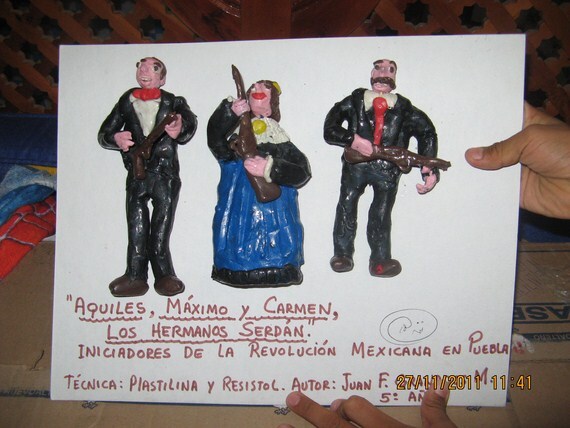 "AQUILES, MÁXIMO Y CARMEN,
LOS HERMANOS SERDÁN."
INICIADORES DE LA REVOLUCIÓN MEXICANA EN PUEBLA
TÉCNICA: PLASTILINA Y RESISTOL. AUTOR: JUAN F. M
5º AÑ
27/11/2011 11:41